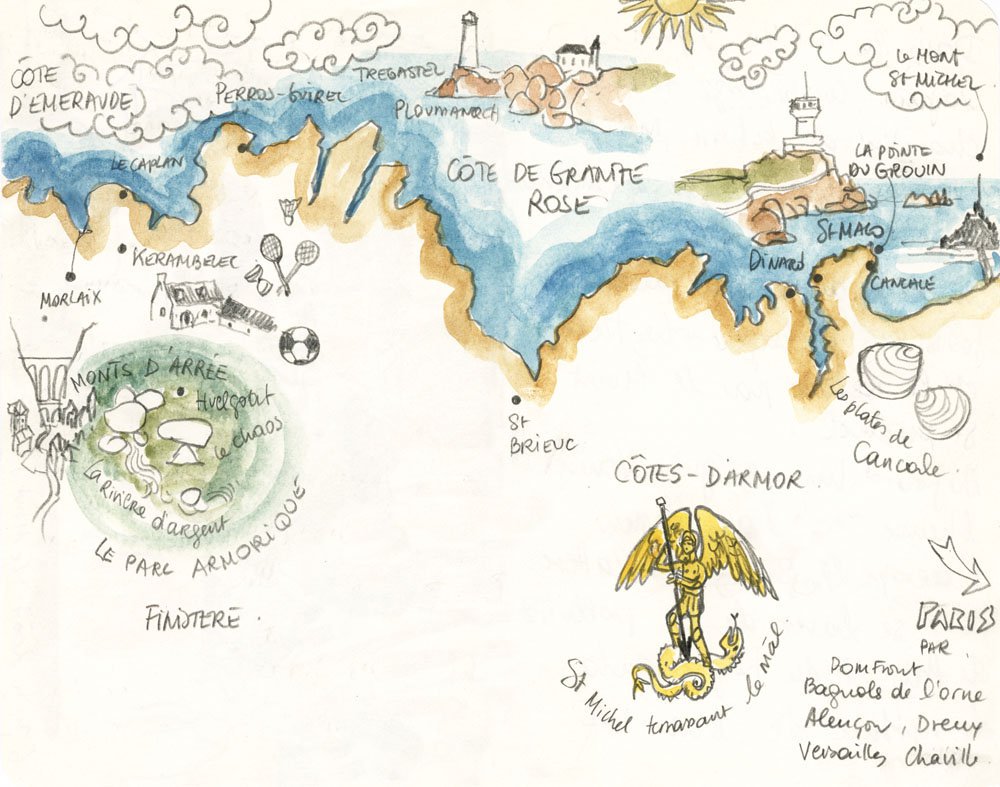 CÔTE
D'EMERAUDE
PERROS-GUIREC
TREGASTEL
PLOUMANACH
LE MONT
ST MICHEL
LE CAPLAN
CÔTE DE GRANITE
ROSE
LA POINTE
DU GROUIN
ST MALO
DINARD
CANCALE
KERAMBELEC
MORLAIX
MONTS D'ARRÉE
Huelgoat
le chaos
La Rivière d'argent
LE PARC ARMORIQUE
FINISTERE.
St
BRIEUC
Les plates de
Cancale.
CÔTES-D'ARMOR
St Michel terrassant le mâl.
PARIS
PAR
DOMFRONT
Bagnols de l'orne
Alençon, Dreux
Versailles Chaville